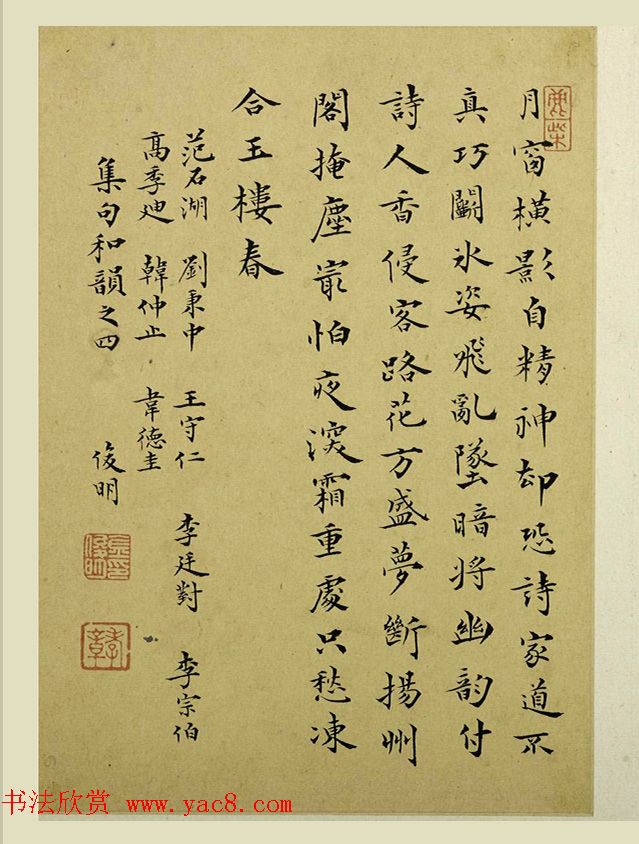 月窗橫影自精神却恐詩家道不
真巧鬭氷姿飛亂墜暗將幽韵付
詩人香侵客路花方盛夢斷揚州
閣掩塵㝡怕夜深霜重處只愁凍
合玉樓春
范石湖 劉秉中 王守仁 李廷對 李宗伯
高季迪 韓仲止 韋德圭
集句和韻之四 俊明
孝章
书法欣赏 www.yac8.com